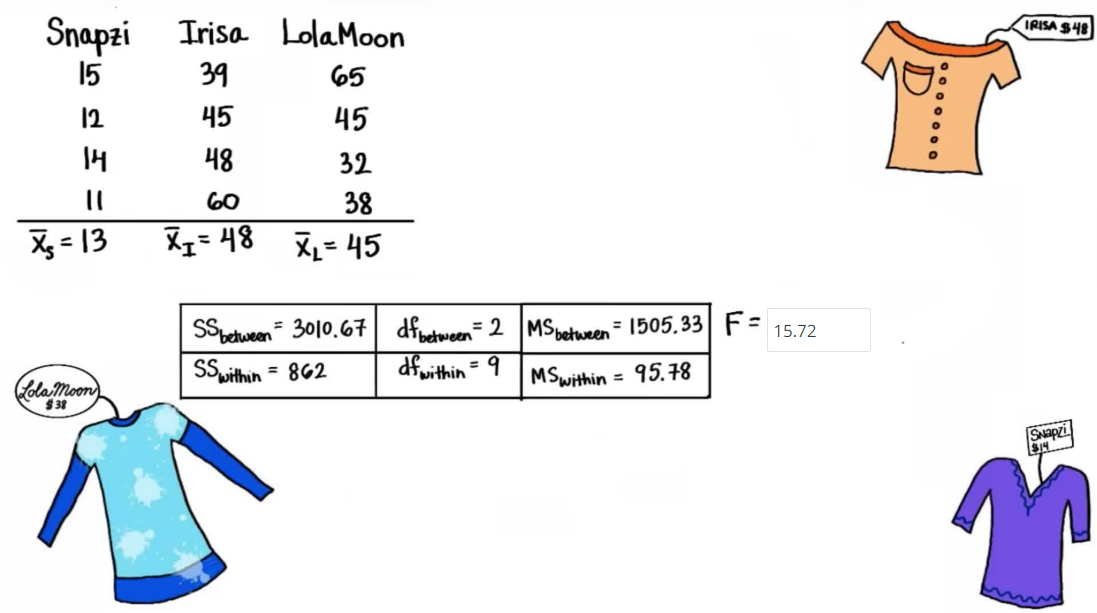 Snapzi Irisa LolaMoon
15 39 65
12 45 45
14 48 32
11 60 38
x̄S = 13 x̄I = 48 x̄L = 45
IRISA $48
SSbetween = 3010.67 dfbetween = 2 MSbetween = 1505.33 F = 15.72
SSwithin = 862 dfwithin = 9 MSwithin = 95.78
LolaMoon
$38
Snapzi
$14